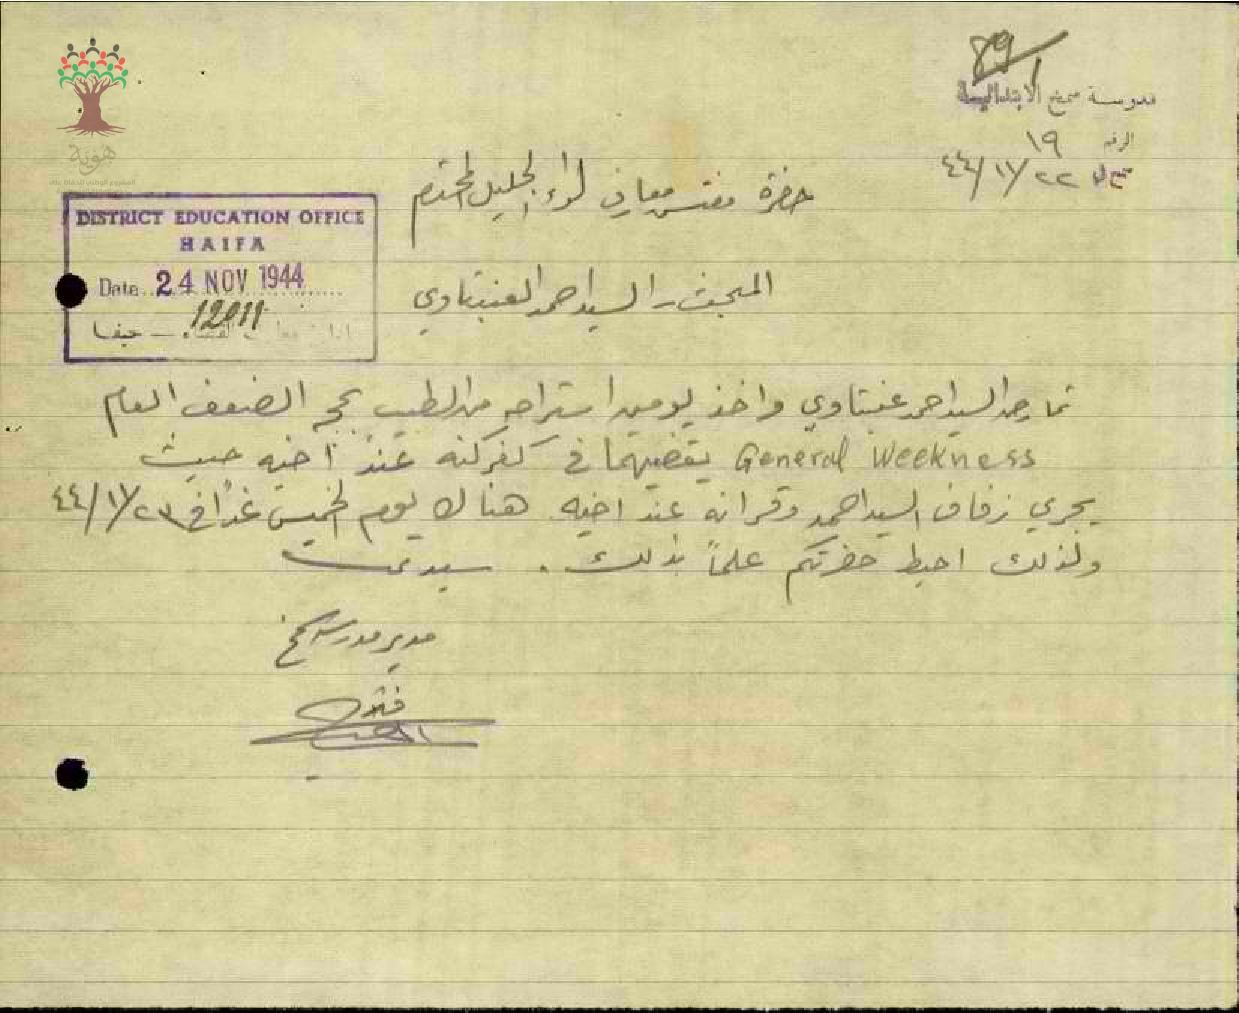 مدرسة سمخ الابتدائية
الرقم ١٩
سمخ في ٢٢/١١/٤٤
حضرة مفتش معارف لواء الجليل المحترم
المبحث - السيد احمد العنبتاوي
تمارض السيد احمد عنبتاوي واخذ يومين استراحه من الطبيب بحجة الضعف العام
General Weekness يقضيهما في كفركنه عند اخيه حيث
يجري زفاف السيد احمد وقرانه عند اخيه هناك يوم الخميس غداً في ٢٣/١١/٤٤
ولذلك احيط حضرتكم علماً بذلك . سيدي
مدير مدرسة سمخ
DISTRICT EDUCATION OFFICE
HAIFA
Date 24 NOV 1944
12011
حيفا
هوية